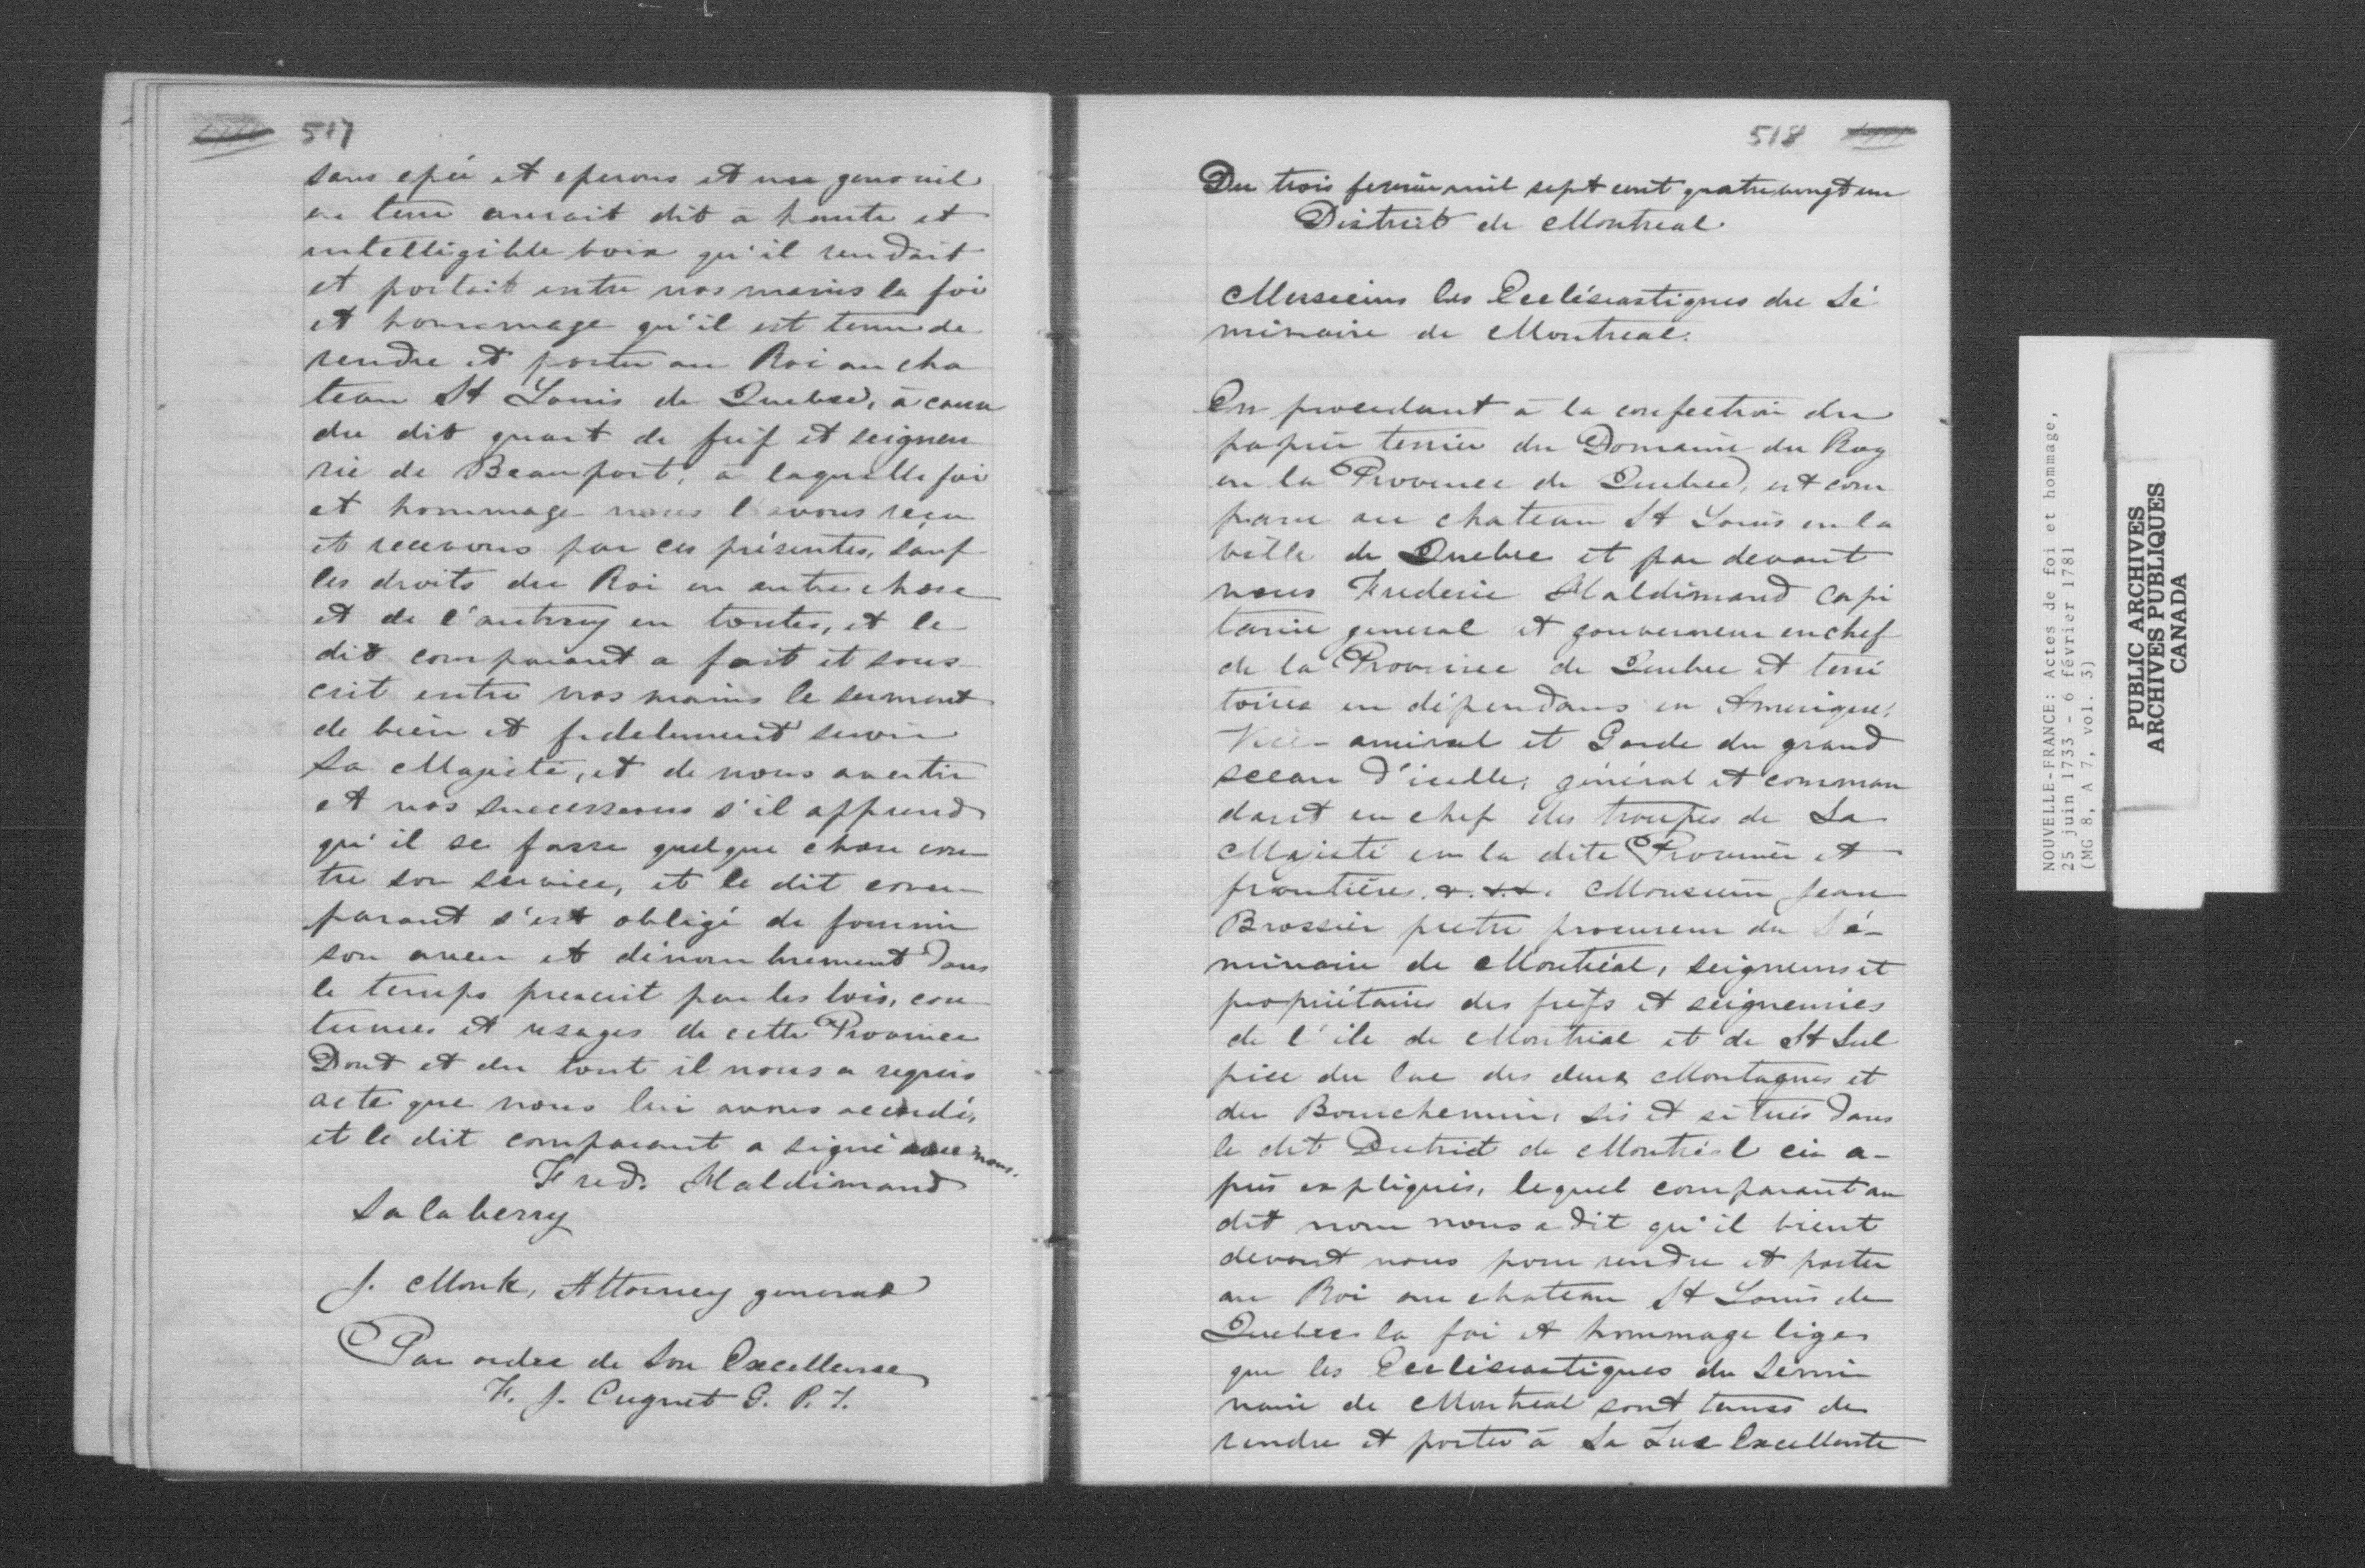 517
sans epée et eperons et un genouil
en terre aurait dit à haute et
intelligible voix qu'il rendait
et portait entre nos mains la foi
et hommage qu'il est tenu de
rendre et porter au Roi au cha
teau St Louis de Quebec, à cause
du dit quart de fief et seigneu
rie de Beauport, à laquelle foi
et hommage nous l'avons reçu
et recevons par ces présentes, sauf
les droits du Roi en autre chose
et de l'autruy en toutes, et le
dit comparant a fait et sous
crit entre nos mains le serment
de bien et fidelement servir
Sa Majesté, et de nous avertir
et nos successeurs s'il apprend
qu'il se fasse quelque chose con
tre son service, et le dit com
parant s'est obligé de fournir
son aveu et dénombrement dans
le temps prescrit par les lois, cou
tumes et usages de cette Province
Dont et du tout il nous a requis
acte que nous lui avons accordé,
et le dit comparant a signé avec nous.
Fred. Haldimand
Salaberry
J. Monk, Attorney general
Par ordre de Son Excellence
F. J. Cugnet G. P. T.
518
Du trois fevrier mil sept cent quatre vingt un
District de Montreal
Messieurs les Ecclésiastiques du Sé
minaire de Montreal.
En procedant à la confection du
papier terrier du Domaine du Roy
en la Province de Quebec, est com
paru au chateau St Louis en la
ville de Quebec et par devant
nous Frederic Haldimand capi
taine general et gouverneur en chef
de la Province de Quebec et terri
toires en dépendans en Amerique,
Vice-amiral et Garde du grand
sceau d'icelle, général et comman
dant en chef des troupes de Sa
Majesté en la dite Province et
frontières. &. &.&. Monsieur Jean
Brassier pretre procureur du Sé-
minaire de Montréal, seigneurs et
propriétaires des fiefs et seigneuries
de l'ile de Montréal et de St Sul
pice du lac des deux Montagnes et
du Bourchemin, sis et situés dans
le dit District de Montréal ci a-
près expliqués, lequel comparant au
dit nom nous a dit qu'il vient
devant nous pour rendre et porter
au Roi au chateau St Louis de
Quebec la foi et hommage lige
que les Ecclésiastiques du Semi
naire de Montreal sont tenus de
rendre et porter à Sa Très Excellente
NOUVELLE-FRANCE: Actes de foi et hommage,
25 juin 1733 - 6 février 1781
(MG 8, A 7, vol. 3)
PUBLIC ARCHIVES
ARCHIVES PUBLIQUES
CANADA